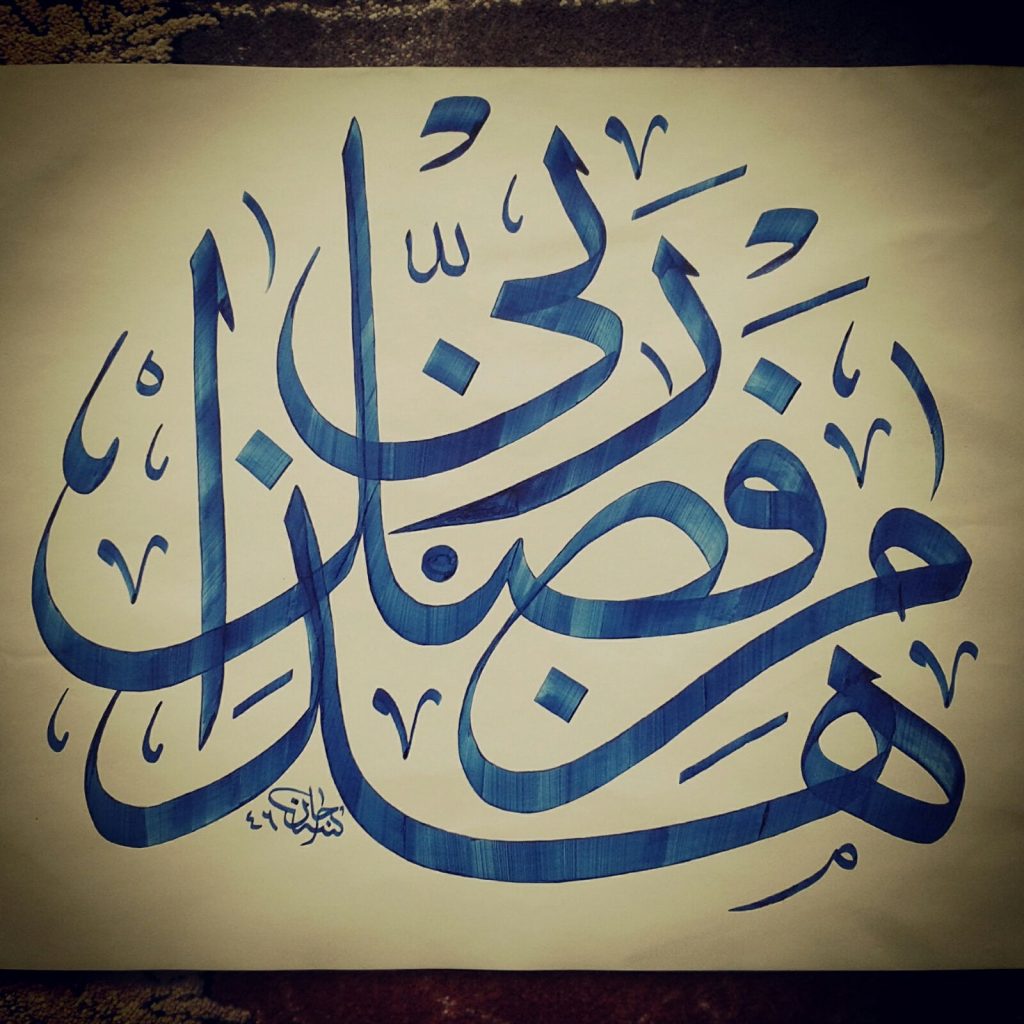 هذا من فضل ربي
٤٦